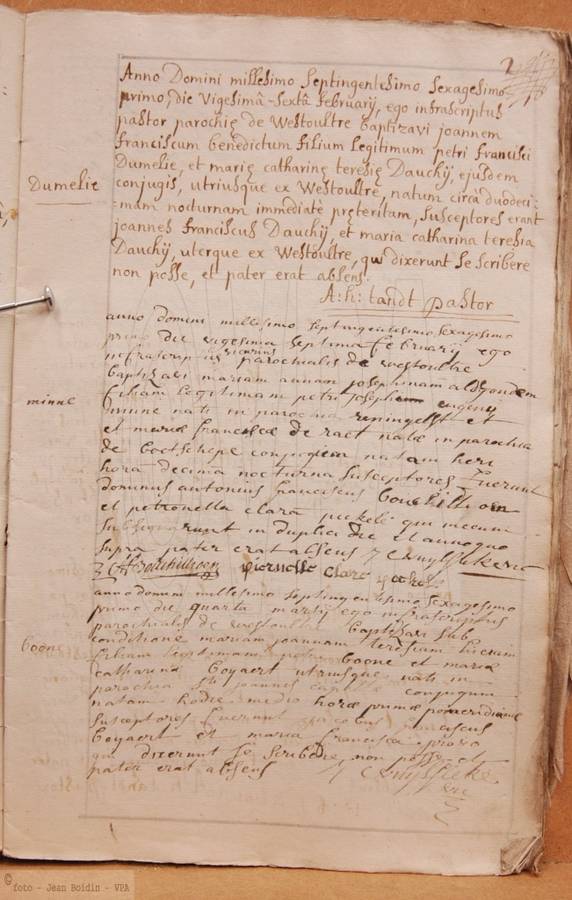 Anno Domini millesimo Septingentesimo Sexagesimo
primo, die Vigesimâ-Sextâ februarij, ego infrascriptus
pastor parochię de Westoultre baptizavi joannem
franciscum benedictum filium legitimum petri francisci
Dumelie
Dumelie, et marię catharinę teresię Dauchÿ, ejusdem
conjugis, utriusque ex Westoultre, natum circà duodeci-
mam nocturnam immediatè pręteritam, Susceptores erant
joannes franciscus Dauchÿ, et maria catharina teresia
Dauchÿ, uterque ex Westoultre, qui dixerunt se scribere
non posse, et pater erat absens.
A: h: tandt pastor
anno domini millesimo septingentesimo sexagesimo
primo die vigesima septima februarij ego
infrascriptus vicarius parochialis de westoultre
baptizavi mariam annam josephinam aldegondem
minne
filiam legitimam petri josephi eugeny
minne nati in parochia reningelst et
et mariæ franciscæ de raet natæ in parochia
de boetschepe conjugum natam heri
hora decima nocturna susceptores fuerunt
dominus antonius franciscus bouchillioen
et petronella clara qui mecum
subsignarunt in duplici die et anno quo
supra pater erat absens
clare
anno domini millesimo septingentesimo sexagesimo
primo die quarta martij ego infrascriptus
parochialis de westoultre baptisavi sub
conditione mariam joannam teresiam
boone
filiam legitimam boone et mariæ
catharina boyaert utriusque nati in
parochia sti joannis conjugum
natam hodie medio horæ primæ pomeridianæ
susceptores fuerunt jacobus franciscus
boyaert et maria francisca
qui dixerunt se scribere non posse et
pater erat absens
©foto - Jean Boidin - VPA